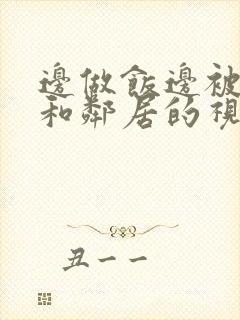 邊做飯邊被
和鄰居的視
丑一一